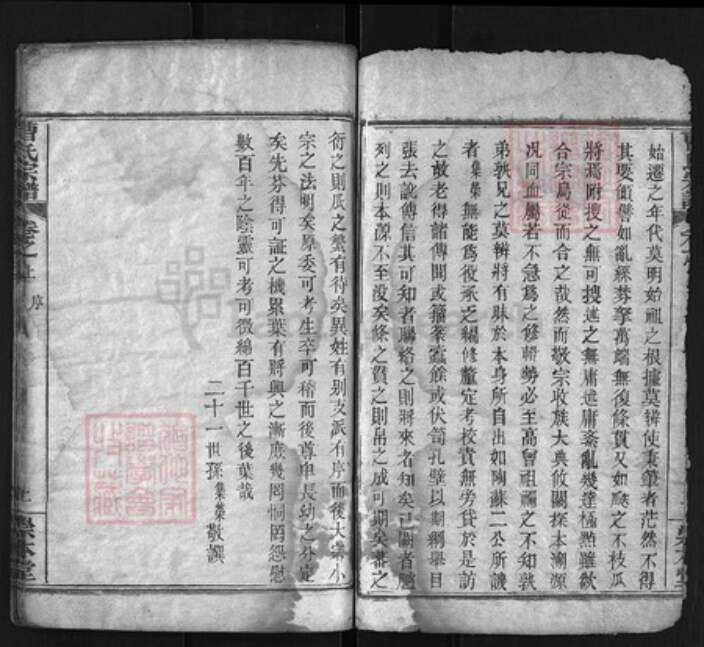 始遷之年代莫明始祖之根據莫辨使秉筆者茫然不得
其要領譬如亂絲棼拏萬端無復條貫又如瓞之不枝瓜
將焉附搜之無可搜述之無庸述庸紊亂幾達極點雖欲
合宗為從而合之哉然而敬宗收族大典攸關探本溯源
况同血屬若不急為之修輯勢必至高曾祖禰之不知孰
弟孰兄之莫辨將有昧於本身所自出如陶蘇二公所譏
者集蓁無能為役承乏編修釐定考校責無旁貸於是訪
之故老得諸傳聞或籀蓁蠹餘或伏笥孔壁以期綱舉目
張去訛傳信其可知者聯絡之則將來者知矣已闕者臚
列之則本源不至没矣條之貫之則吊之成可期矣蕃之
衍之則瓜之繁有待矣異姓有别支派有序而後大宗小
宗之法明矣原委可考生卒可稽而後尊卑長幼之分定
矣先芬得可証之機累葉有將興之漸庶幾罔恫罔怨慰
數百年之陰靈可考可徵綿百千世之後葉哉
二十一世孫集蓁敬譔
曹氏宗譜
卷之上
序